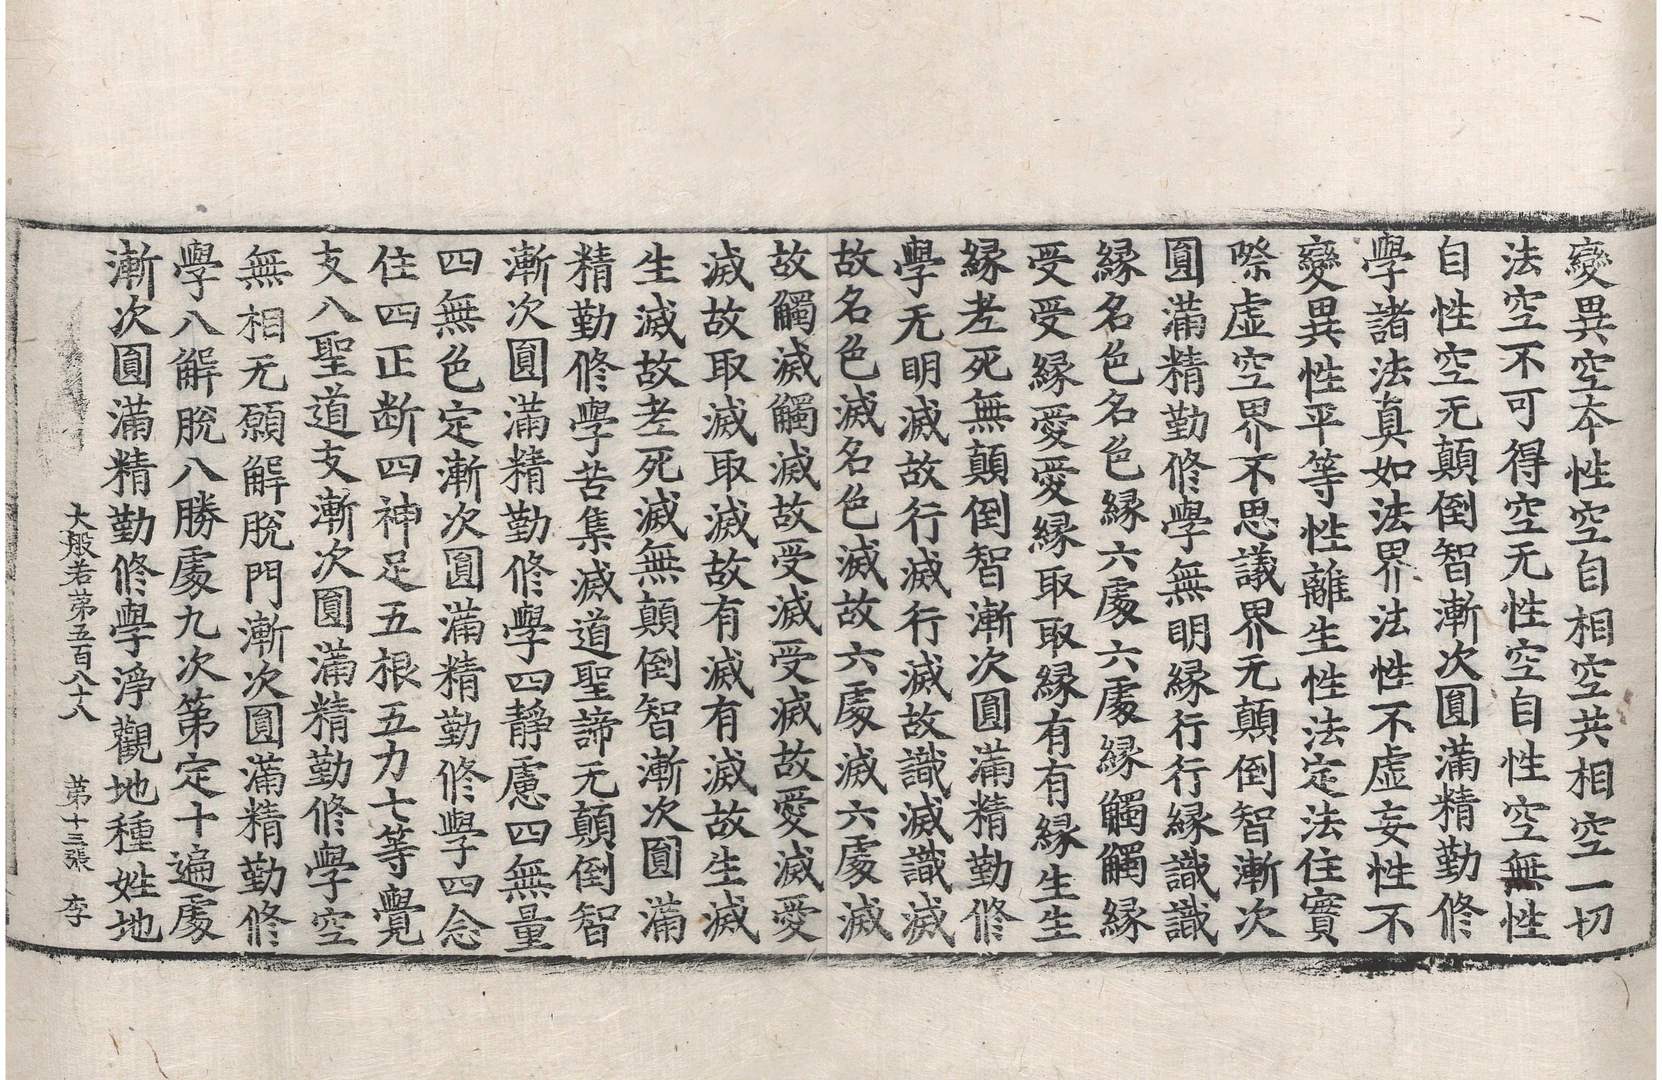 變異空本性空自相空共相空一切
法空不可得空无性空自性空無性
自性空无顛倒智漸次圓滿精勤修
學諸法真如法界法性不虛妄性不
變異性平等性離生性法定法住實
際虛空界不思議界无顛倒智漸次
圓滿精勤修學無明縁行行縁識識
縁名色名色縁六處六處縁觸觸縁
受受縁愛愛縁取取縁有有縁生生
縁老死無顛倒智漸次圓滿精勤修
學无明滅故行滅行滅故識滅識滅
故名色滅名色滅故六處滅六處滅
故觸滅觸滅故受滅受滅故愛滅愛
滅故取滅取滅故有滅有滅故生滅
生滅故老死滅無顛倒智漸次圓滿
精勤修學苦集滅道聖諦无顛倒智
漸次圓滿精勤修學四靜慮四無量
四無色定漸次圓滿精勤修學四念
住四正断四神足五根五力七等覺
支八聖道支漸次圓滿精勤修學空
無相无願解脫門漸次圓滿精勤修
學八解脫八勝處九次第定十遍處
漸次圓滿精勤修學淨觀地種姓地
大般若第五百八十八 第十三張 李